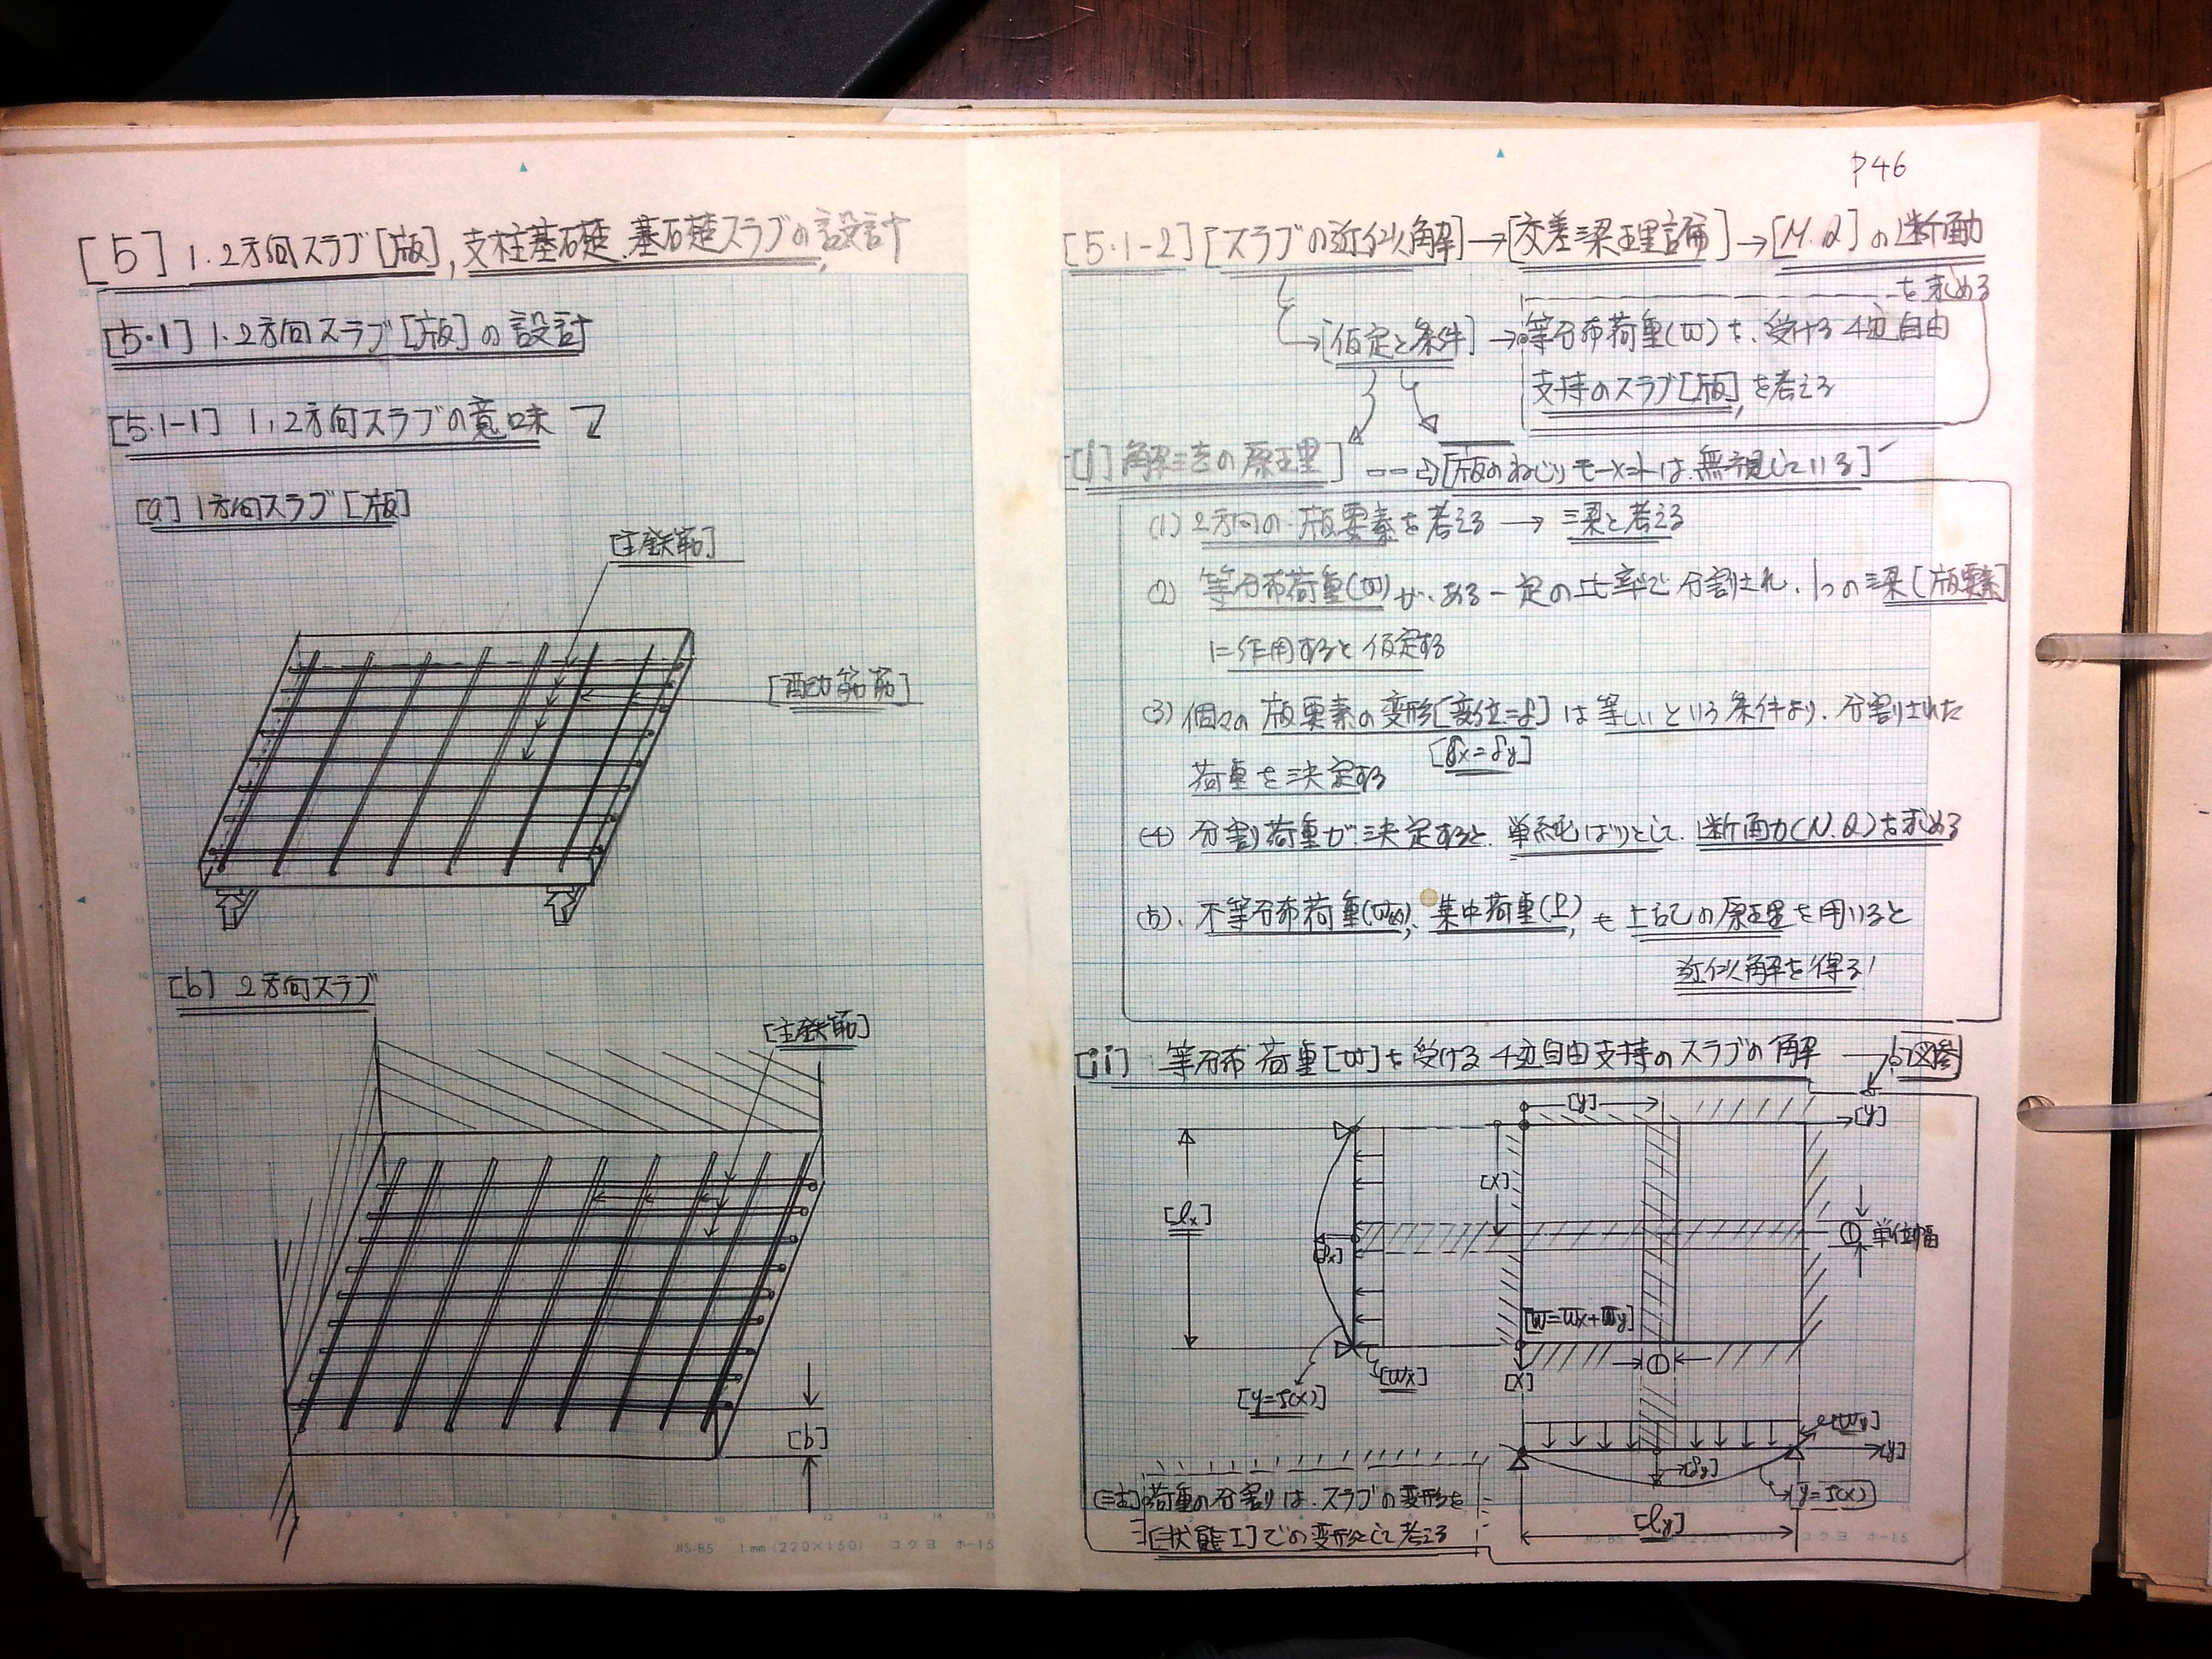 [5] 1.2方向スラブ[版], 支柱基礎、基礎スラブの設計
[5.1] 1.2方向スラブ[版]の設計
[5.1-1] 1,2方向スラブの意味
[a] 1方向スラブ[版]
[主鉄筋]
[配力鉄筋]
[b] 2方向スラブ
[主鉄筋]
[b]
JIS-B5 1mm(220×150) コクヨ ホ-15
P46
[5.1-2] [スラブの近似解]→[交差梁理論]→[M.Q]の断面力
を求める
→[仮定と条件]→等分布荷重(w)を、受ける4辺自由
支持のスラブ[版]を考える
[i] 解法の原理] --→[版のねじりモーメントは、無視している]
(1) 2方向の版要素を考える → 梁と考える
(2) 等分布荷重(w)が、ある一定の比率で分割され、1つの梁[版要素]
に作用すると仮定する
(3) 個々の版要素の変形[変位=δ]は等しいという条件より、分割された
[δx=δy]
荷重を決定する
(4) 分割荷重が決定すると、単純ばりとして、断面力(M.Q)を求める
(5)、不等分布荷重(wx)、集中荷重(P)、も上記の原理を用いると
近似解を得る!
[ii] 等分布荷重[w]を受ける4辺自由支持のスラブの解 →図参
[y]
[y]
[x]
[lx]
[δx]
① 単位幅
[w=wx+wy]
①
[x]
[wx]
[y=f(x)]
[wy]
[y]
[δy]
[y=f(x)]
[ly]
[注]荷重の分割は、スラブの変形を
[状態I]での変形として考える